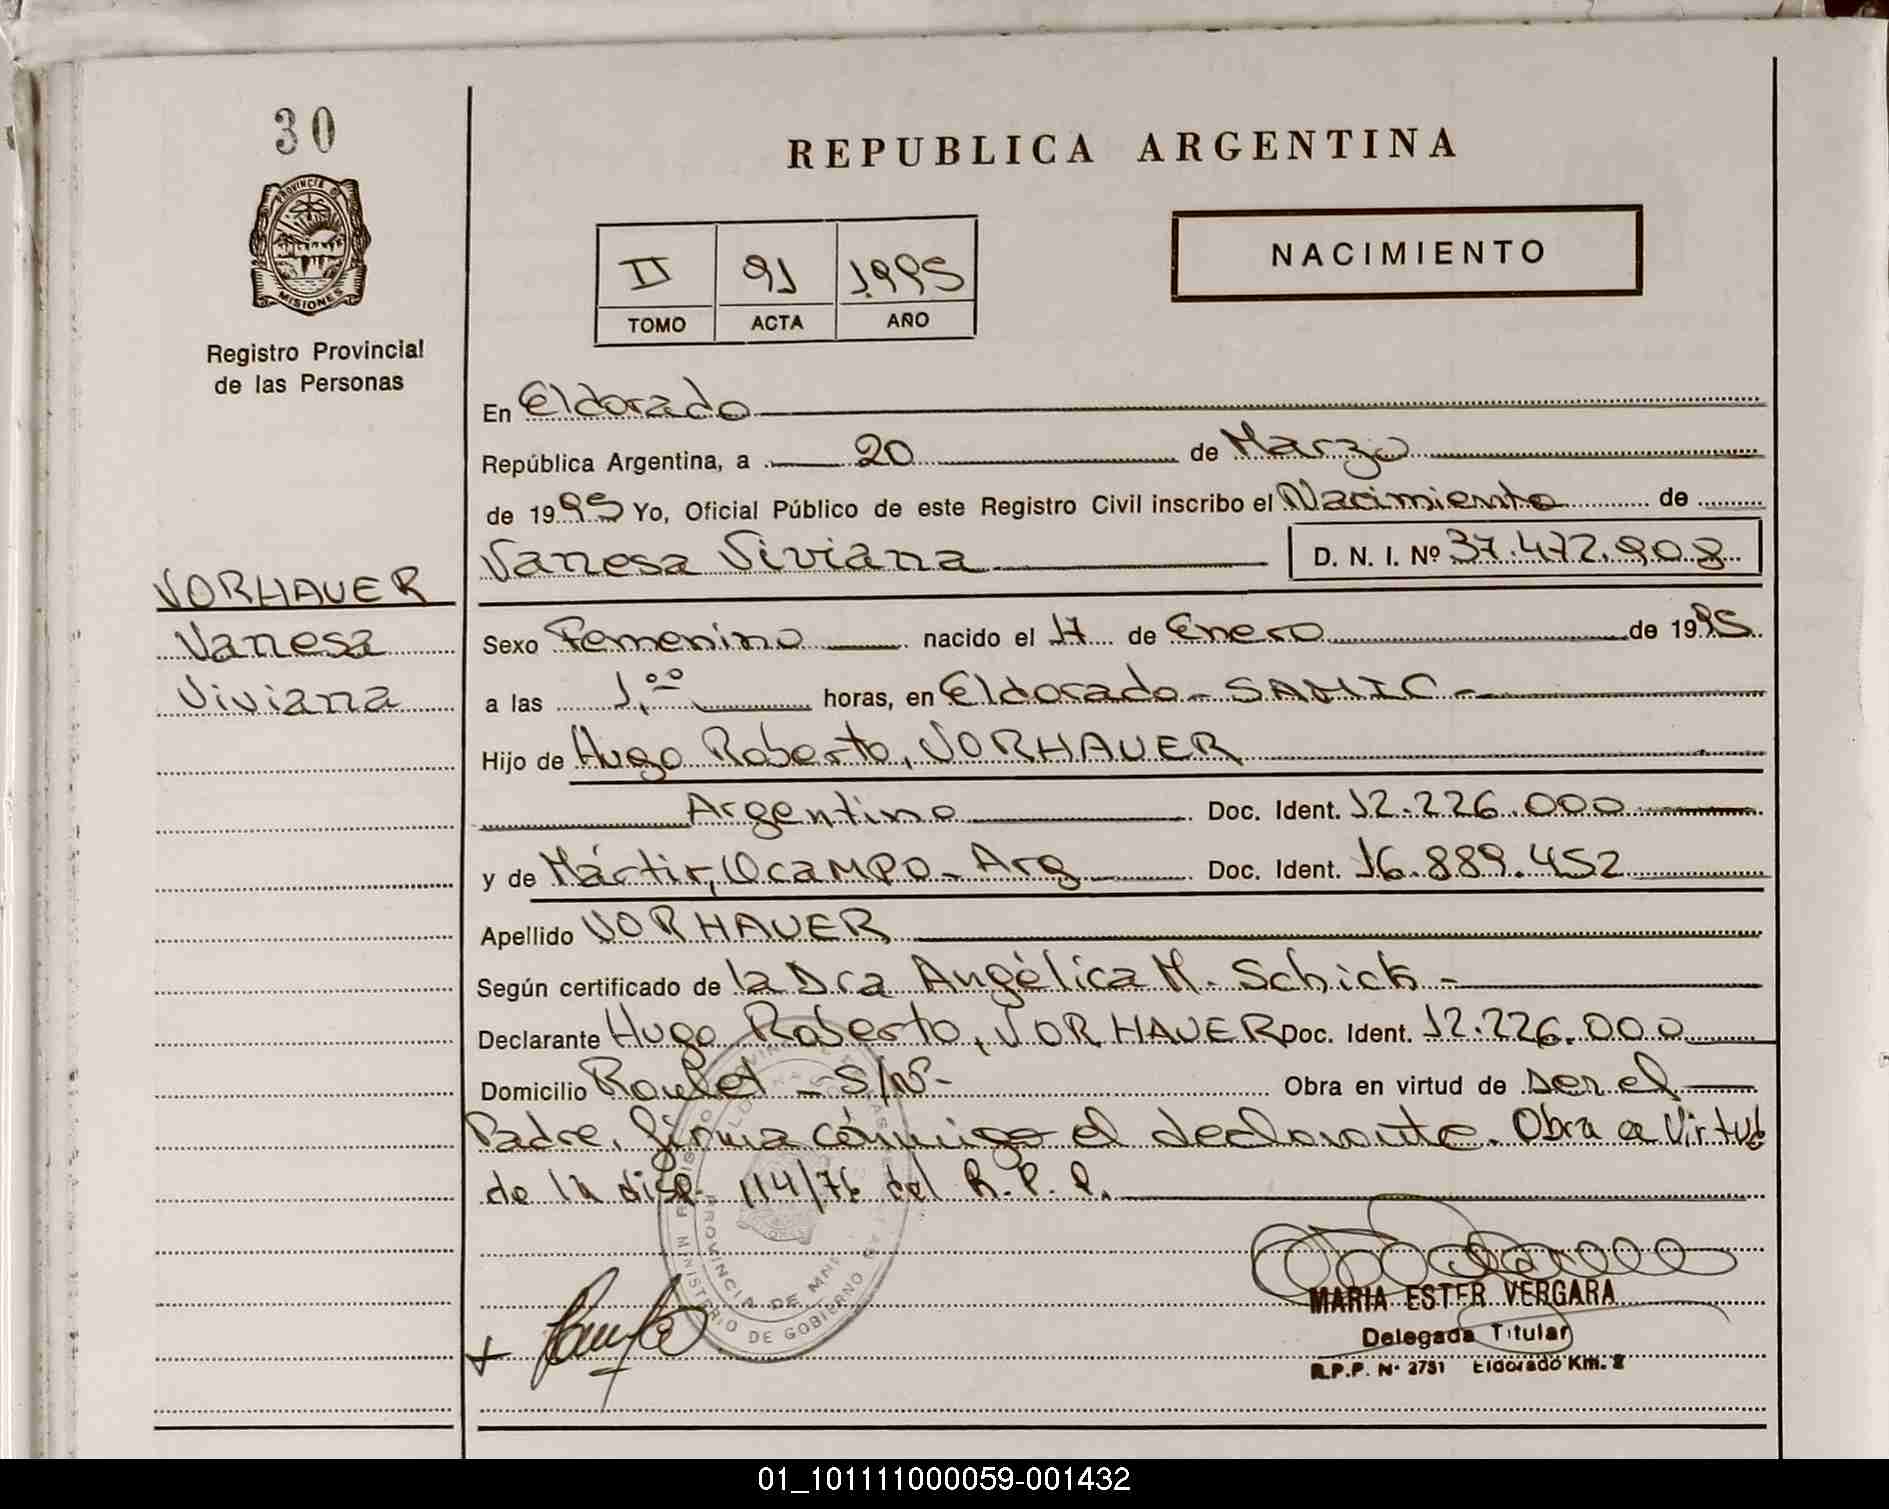 30
PROVINCIA DE
MISIONES
Registro Provincial
de las Personas
REPUBLICA ARGENTINA
NACIMIENTO
II 91 1995
TOMO ACTA AÑO
En Eldorado
República Argentina, a 20 de Marzo
de 1995 Yo, Oficial Público de este Registro Civil inscribo el Nacimiento de
Vanesa Viviana D. N. I. Nº 37.472.908
VORHAUER
Vanesa
Viviana
Sexo Femenino nacido el 17 de Enero de 1995
a las 1,⁰⁰ horas, en Eldorado - SAMIC -
Hijo de Hugo Roberto, VORHAUER
Argentino Doc. Ident. 12.226.000
y de Mártir, Ocampo - Arg Doc. Ident. 16.889.452
Apellido VORHAUER
Según certificado de la Dra Angélica M. Schick -
Declarante Hugo Roberto, VORHAUER Doc. Ident. 12.226.000
Domicilio Roulet - S/Nº - Obra en virtud de ser el
Padre, firma conmigo el declarante. Obra a Virtud
de la disp. 114/76 del R.P.P.
PROVINCIA DE
MINISTERIO DE GOBIERNO
MARIA ESTER VERGARA
Delegada Titular
R.P.P. Nº 2751 Eldorado Km. 2
01_101111000059-001432